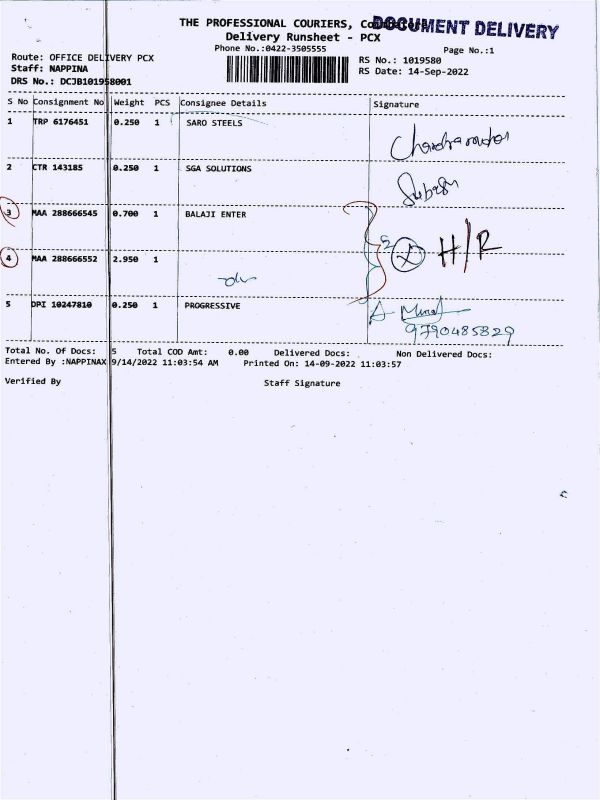 THE PROFESSIONAL COURIERS,
DOCUMENT DELIVERY
Delivery Runsheet - PCX
Phone No.:0422-3505555
Page No.:1
Route: OFFICE DELIVERY PCX
RS No.: 1019580
Staff: NAPPINA
RS Date: 14-Sep-2022
DRS No.: DCJB101958001
S No Consignment No Weight PCS Consignee Details Signature
1 TRP 6176451 0.250 1 SARO STEELS
2 CTR 143185 0.250 1 SGA SOLUTIONS
3 MAA 288666545 0.700 1 BALAJI ENTER
H/R
4 MAA 288666552 2.950 1
5 DPI 10247810 0.250 1 PROGRESSIVE
9790485829
Total No. Of Docs: 5 Total COD Amt: 0.00 Delivered Docs: Non Delivered Docs:
Entered By :NAPPINAX 9/14/2022 11:03:54 AM Printed On: 14-09-2022 11:03:57
Verified By Staff Signature